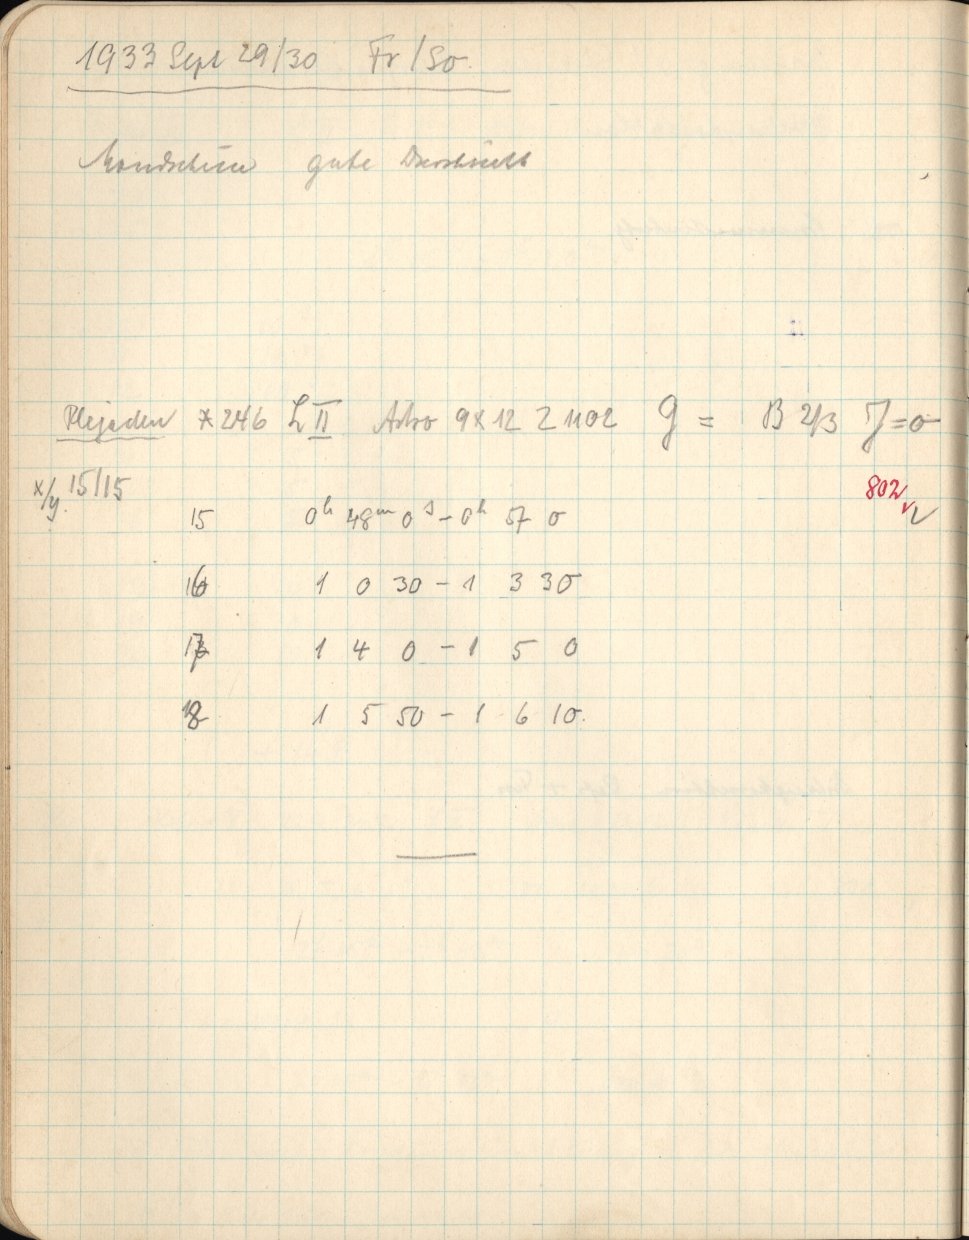 1933 Sept 29/30 Fr/So.
Mondschein gute Durchsicht
Plejaden *246 L II Astro 9x12 Z 1102 g = B 2/3 J=0
x/y. 15/15
802
15 0h 48m 0s - 0h 57 0
16 1 0 30 - 1 3 30
17 1 4 0 - 1 5 0
18 1 5 50 - 1 6 10.